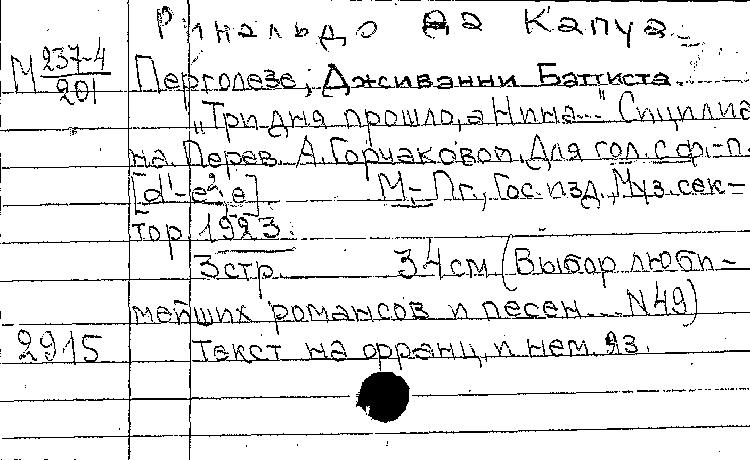 Ринальдо да Капуа
М 237-4/201 Перголезе, Дживанни Баттиста.
„Три дня прошло, а Нина..." Сицилиа-
на. Перев. А. Горчаковой. Для гол. с ф.-п.
[d¹-e², e]. М.-Пг., Гос. изд., Муз. сек-
тор 1923.
3 стр. 34 см (Выбор люби-
мейших романсов и песен... N 49)
2915 Текст на франц. и нем. яз.